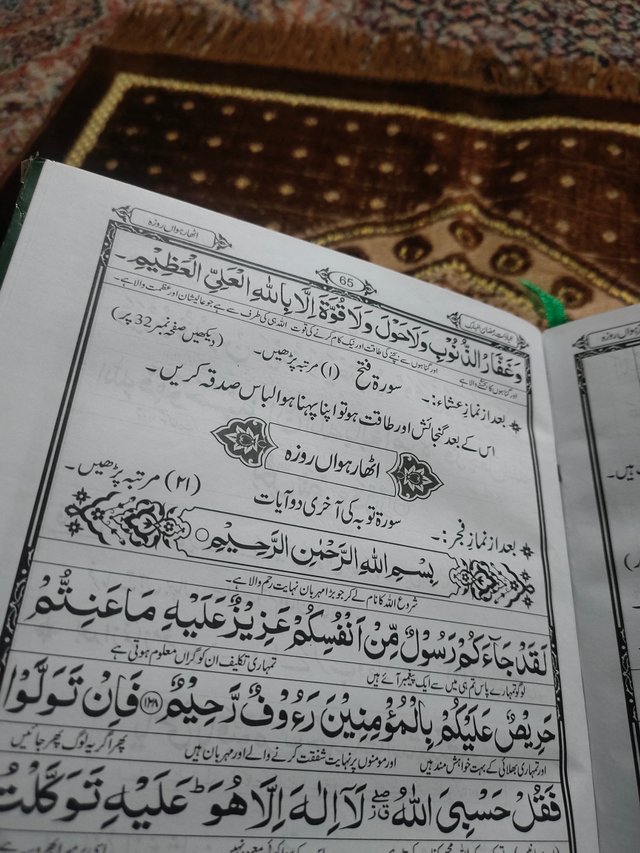 اٹھارہواں روزہ
65
عبادات رمضان المبارک
وَغَفَّارُ الذُّنُوْبِ وَلَا حَوْلَ وَلَا قُوَّةَ اِلَّا بِاللّٰهِ الْعَلِيِّ الْعَظِيْمِ۔
اور گناہوں کا بخشنے والا ہے اور گناہوں سے بچنے کی طاقت اور نیک کام کرنے کی قوت اللہ ہی کی طرف سے ہے جو عالیشان اور عظمت والا ہے۔
بعد از نمازِ عشاء:۔ سورۃ فتح (۱) مرتبہ پڑھیں۔ (دیکھیں صفحہ نمبر 32 پر)
اس کے بعد گنجائش اور طاقت ہو تو اپنا پہنا ہوا لباس صدقہ کریں۔
اٹھارہواں روزہ
بعد از نمازِ فجر:۔ سورۃ توبہ کی آخری دو آیات (۲۱) مرتبہ پڑھیں۔
بِسْمِ اللّٰهِ الرَّحْمٰنِ الرَّحِيْمِ
شروع اللہ کا نام لے کر جو بڑا مہربان نہایت رحم والا ہے۔
لَقَدْ جَآءَكُمْ رَسُوْلٌ مِّنْ اَنْفُسِكُمْ عَزِيْزٌ عَلَيْهِ مَا عَنِتُّمْ
لوگو تمہارے پاس تم ہی میں سے ایک پیغمبر آئے ہیں تمہاری تکلیف ان کو گراں معلوم ہوتی ہے
حَرِيْصٌ عَلَيْكُمْ بِالْمُؤْمِنِيْنَ رَءُوْفٌ رَّحِيْمٌ ﴿۱۲۸﴾ فَاِنْ تَوَلَّوْا
اور تمہاری بھلائی کے بہت خواہش مند ہیں اور مومنوں پر نہایت شفقت کرنے والے اور مہربان ہیں پھر اگر یہ لوگ پھر جائیں
فَقُلْ حَسْبِيَ اللّٰهُ لَآ اِلٰهَ اِلَّا هُوَ ؕ عَلَيْهِ تَوَكَّلْتُ